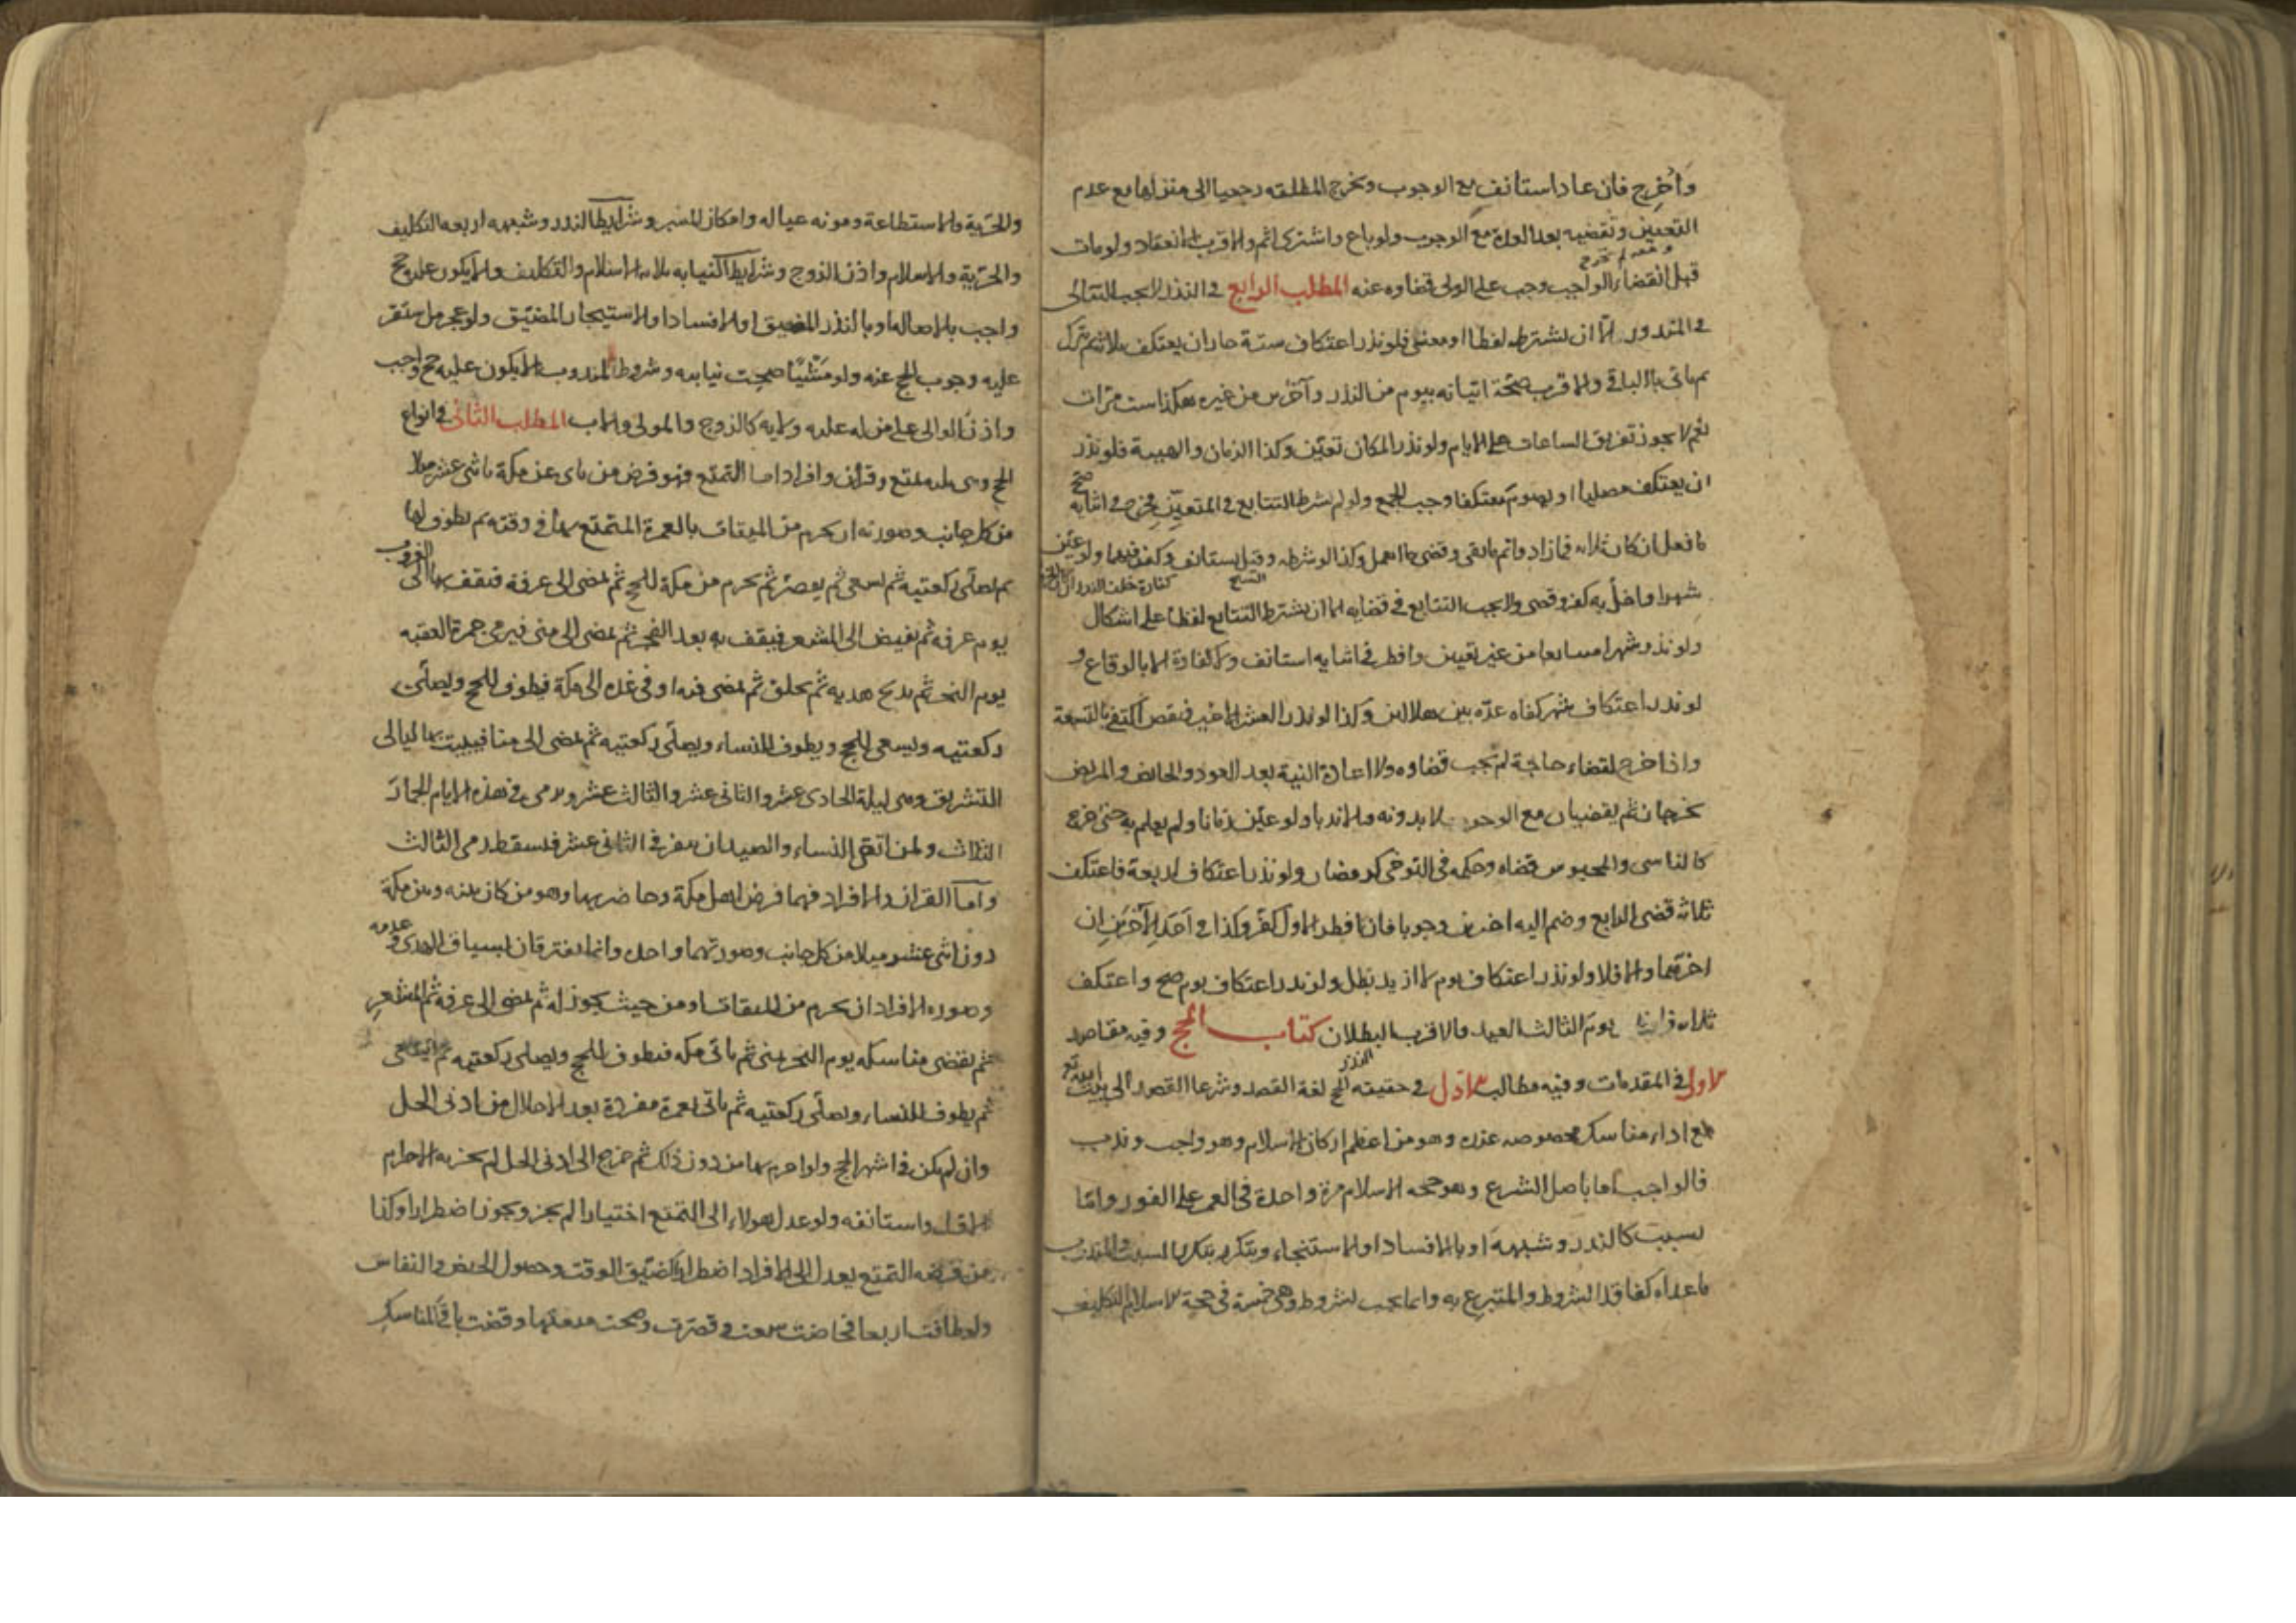 وأُخرِج فان عاد استانف مع الوجوب وتخرج المطلقه رجعيا الى منزلها مع عدم
التعيين وتقضيه بعد العدة مع الوجوب ولو باع واشترى اثم والاقرب الانعقاد ولو مات
قبل انقضاء الواجب وجب على الولى قضاوه عنه المطلب الرابع فى النذر لا يجب التتالى
فى المنذور الا ان يشترطه لفظا او معنى فلو نذر اعتكاف ستة جاز ان يعتكف ثلاثة ثم يترك
ثم ياتى بالباقى والاقرب صحّة اتيانه بيوم من النذر وآخرين من غيره هكذا ست مرّات
نعم لا يجوز تفريق الساعات على الايام ولو نذر المكان تعيّن وكذا الزمان والهيئة فلو نذر
ان يعتكف مصليا او يصوم معتكفا وجب الجمع ولو لم يشرط التتابع فى المتعيّن فخرج فى اثنائه صحّ
ما فعل ان كان ثلاثه فما زاد واتم ما بقى وقضى ما اهمل وكذا لو شرطه وقيل يستانف وكفر فيهما ولو عيّن
شهرا واخلّ به كفر وقضى ولا يجب التتابع فى قضايه الا ان يشترط التتابع لفظا على اشكال
ولو نذر شهرا متتابعا من غير تعيين وافطر فى اثنايه استانف ولا كفارة الا بالوقاع و
لو نذر اعتكاف شهر كفاه عدّه بين هلالين وكذا لو نذر العشر الاخير فنقص اكتفى بالتسعة
واذا خرج لقضاء حاجة لم تجب قضاوه ولا اعادة النية بعد العود والحايض والمريض
يخرجان ثم يقضيان مع الوجوب لا بدونه ولا ندبا ولو عيّن زمانا ولم يعلم به حتى خرج
كالناسى والمحبوس قضاه وحكمه فى التوخى كرمضان ولو نذر اعتكاف اربعة فاعتكف
ثلاثه قضى الرابع وضم اليه اخرين وجوبا فان افطر الاول كفّر وكذا فى احَدِ الآخرَينِ ان
اخرّهما والا فلا ولو نذر اعتكاف يوم لا ازيد بطل ولو نذر اعتكاف يوم صح واعتكف
ثلاثه يوم الثالث العيد فالاقرب البطلان كتاب الحج وفيه مقاصد
الاول فى المقدمات وفيه مطالب الاول فى حقيقته الحج لغة القصد وشرعا القصد الى بيت الله تع
مع اداء مناسك مخصوصه عنده وهو من اعظم اركان الاسلام وهو واجب وندب
فالواجب اما باصل الشرع وهو حجه الاسلام مرة واحدة فى العمر على الفور وامّا
لسبب كالنذر وشبهه او بالافساد او الاستنجاء ويتكرر بتكرر السبب والمندوب
ما عداه كفاقد الشروط والمتبرع به وانما يجب لشروط وهى خمسة فى حجة الاسلام التكليف
والحرّية والاستطاعة ومونه عياله وامكان المسير وشرايط النذر وشبهه اربعه التكليف
والحرّية والاسلام واذن الزوج وشرايط النيابه ثلاثه الاسلام والتكليف والا يكون عليه حج
واجب بالاصاله او بالنذر المضيق او الافساد او الاستيجار المضيّق ولو عجز من استقر
عليه وجوب الحج عنه ولو مَشْيًا صحت نيابته وشروط المندوب الا يكون عليه حج واجب
واذن الوالى على من له عليه ولايه كالزوج والمولى والاب المطلب الثانى فى انواع
الحج وهى ثلثه تمتع وقران وافراد اما التمتع فهو فرض من ناى عن مكة باثنى عشر ميلا
من كل جانب وصورته ان يحرم من الميقات بالعمرة المتمتع بها فى وقته ثم يطوف لها
ثم يصلّى ركعتيه ثم يسعى ثم يقصّر ثم يحرم من مكة للحج ثم يمضى الى عرفة فيقف بها الى الغروب
يوم عرفه ثم يفيض الى المشعر فيقف به بعد الفجر ثم يمضى الى منى فيرمى جمرة العقبه
يوم النحر ثم يذبح هديه ثم يحلق ثم يمضى فيه او فى غده الى مكة فيطوف للحج ويصلّى
ركعتيه ويسعى للحج ويطوف للنساء ويصلّى ركعتيه ثم يمضى الى منا فيبيت بها ليالى
التشريق وهى ليلة الحادى عشر والثانى عشر والثالث عشر ويرمى فى هذه الايام الجمار
الثلاث ولمن اتقى النساء والصيد ان ينفر فى الثانى عشر فيسقط رمى الثالث
وامّا القران والافراد فهما فرض اهل مكة وحاضريها وهو من كان بينه وبين مكة
دون اثنى عشر ميلا من كل جانب وصورتهما واحده وانما يفترقان بسياق الهدى وعدمه
وصوره الافراد ان يحرم من الميقات او من حيث يجوز له ثم يمضى الى عرفه ثم المشعرِ
ثم يقضى مناسكه يوم النحر بمنى ثم ياتى مكه فيطوف للحج ويصلى ركعتيه ثم يسعى
ثم يطوف للنساء ويصلّى ركعتيه ثم ياتى بعمرة مفردة بعد الاحلال من ادنى الحل
وان لم يكن فى اشهر الحج ولو احرم بها من دون ذلك ثم خرج الى ادنى الحل لم يجزيه الاحرام
الاول واستانفه ولو عدل هولاء الى التمتع اختيارا لم يجز ويجوز اضطرارا وكذا
من فرضه التمتع يعدل الى الافراد اضطرارا كضيّق الوقت وحصول الحيض والنفاس
ولو طافت اربعا فحاضت سعت وقصّرت وصحت متعتها وقضت باقى المناسك